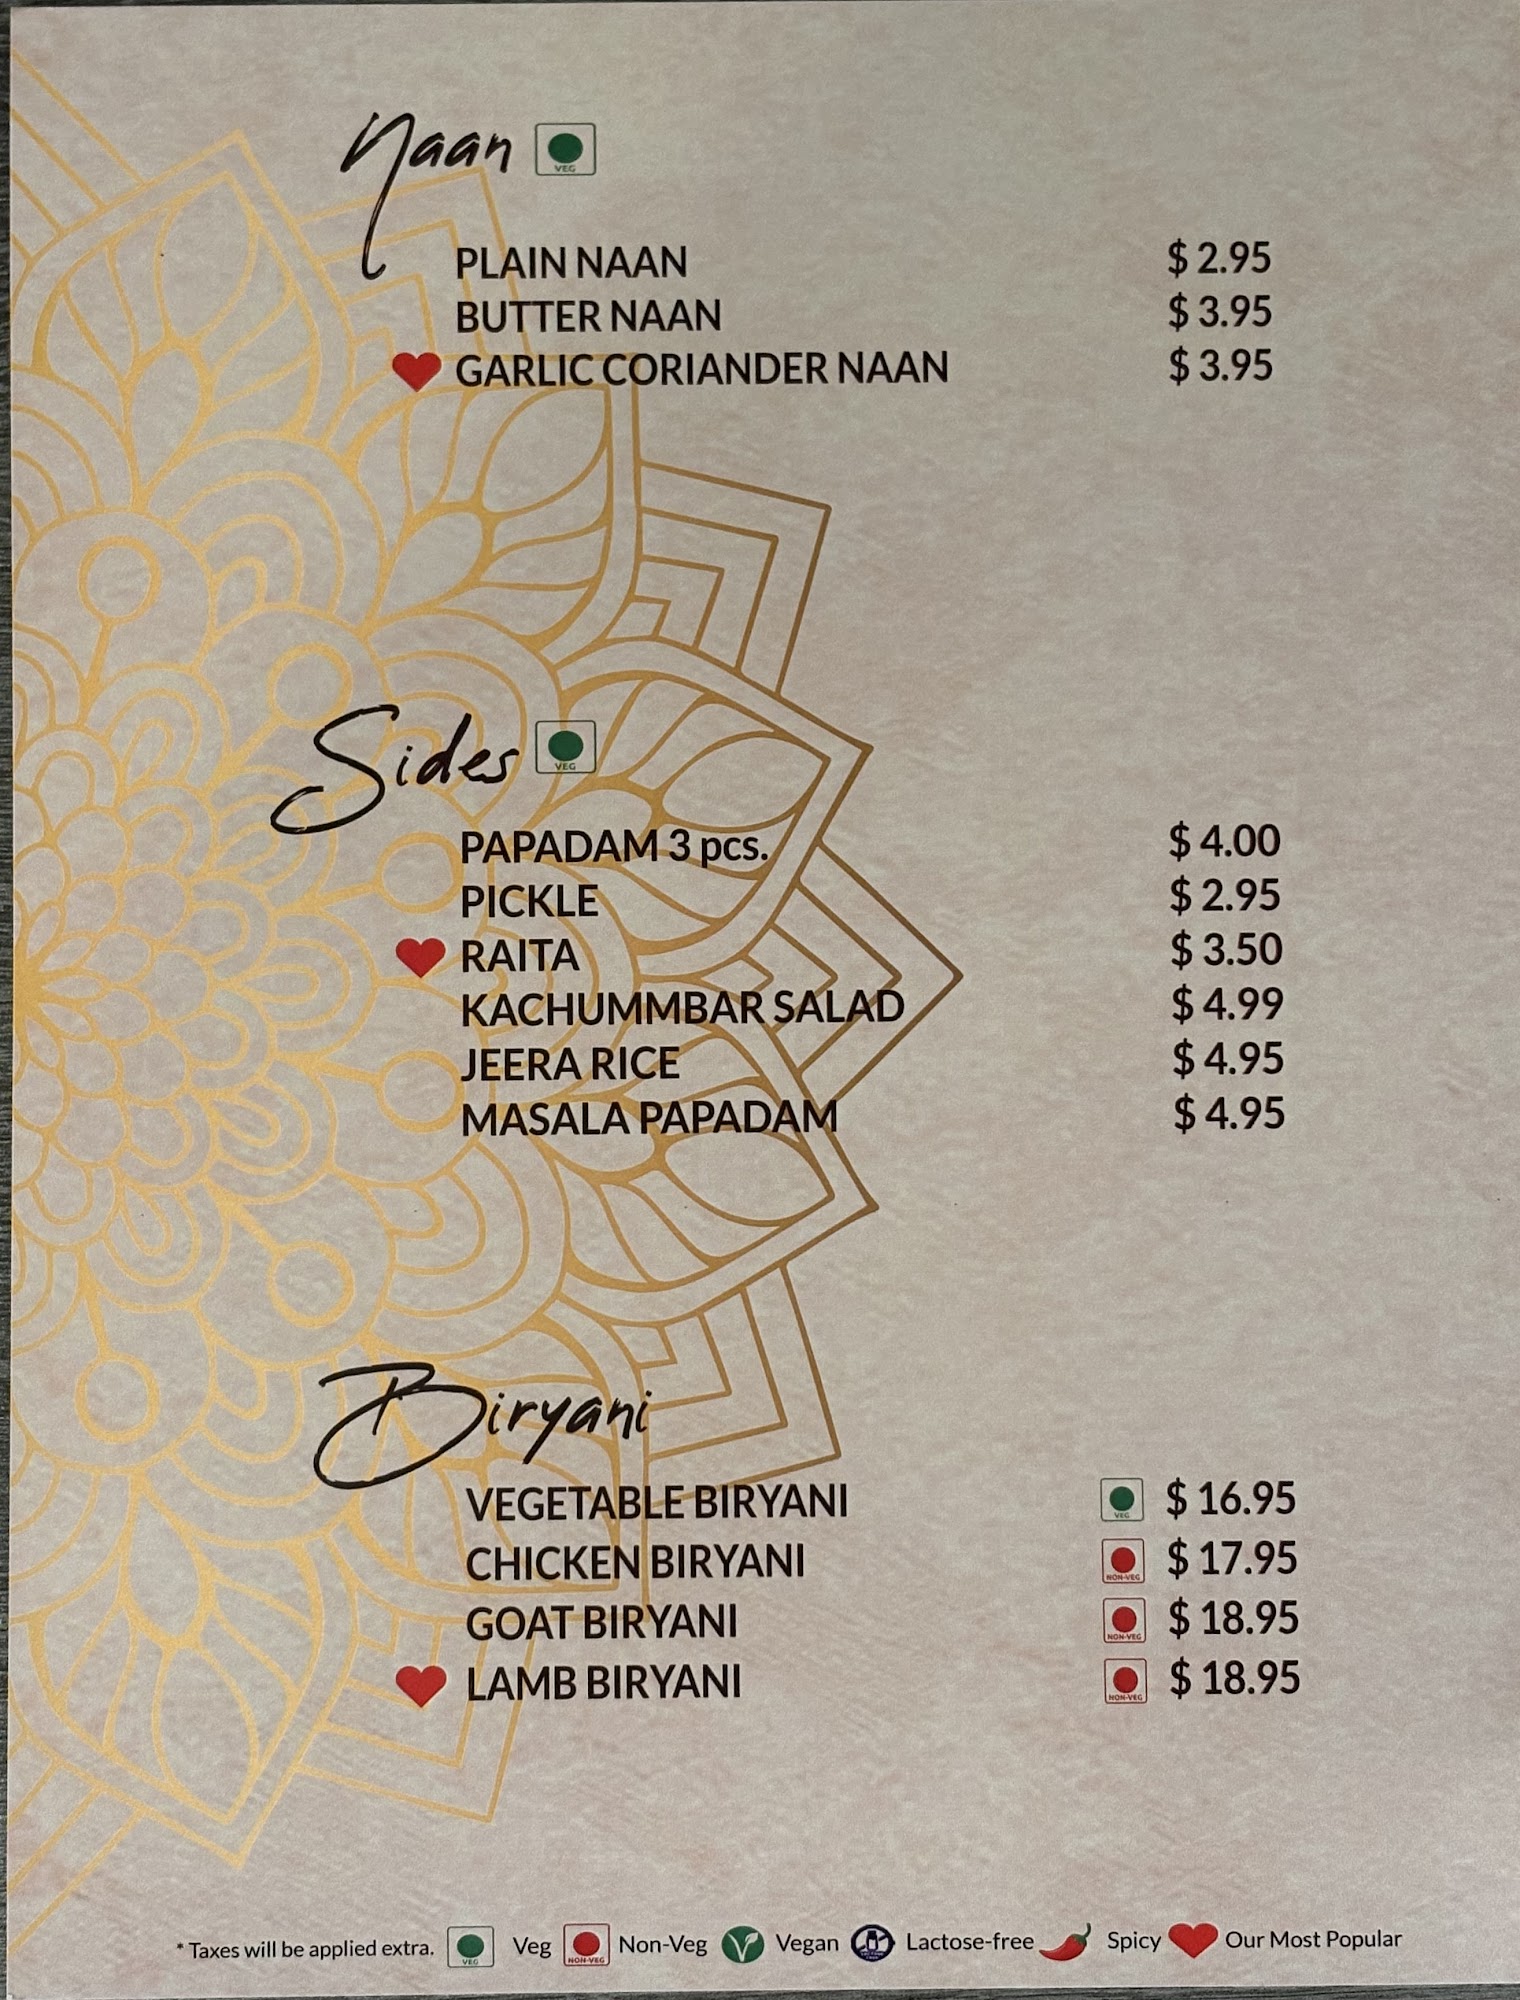 Naan VEG
PLAIN NAAN $ 2.95
BUTTER NAAN $ 3.95
GARLIC CORIANDER NAAN $ 3.95
Sides VEG
PAPADAM 3 pcs. $ 4.00
PICKLE $ 2.95
RAITA $ 3.50
KACHUMMBAR SALAD $ 4.99
JEERA RICE $ 4.95
MASALA PAPADAM $ 4.95
Biryani
VEGETABLE BIRYANI VEG $ 16.95
CHICKEN BIRYANI NON-VEG $ 17.95
GOAT BIRYANI NON-VEG $ 18.95
LAMB BIRYANI NON-VEG $ 18.95
* Taxes will be applied extra. VEG Veg NON-VEG Non-Veg Vegan Lactose-free Spicy Our Most Popular